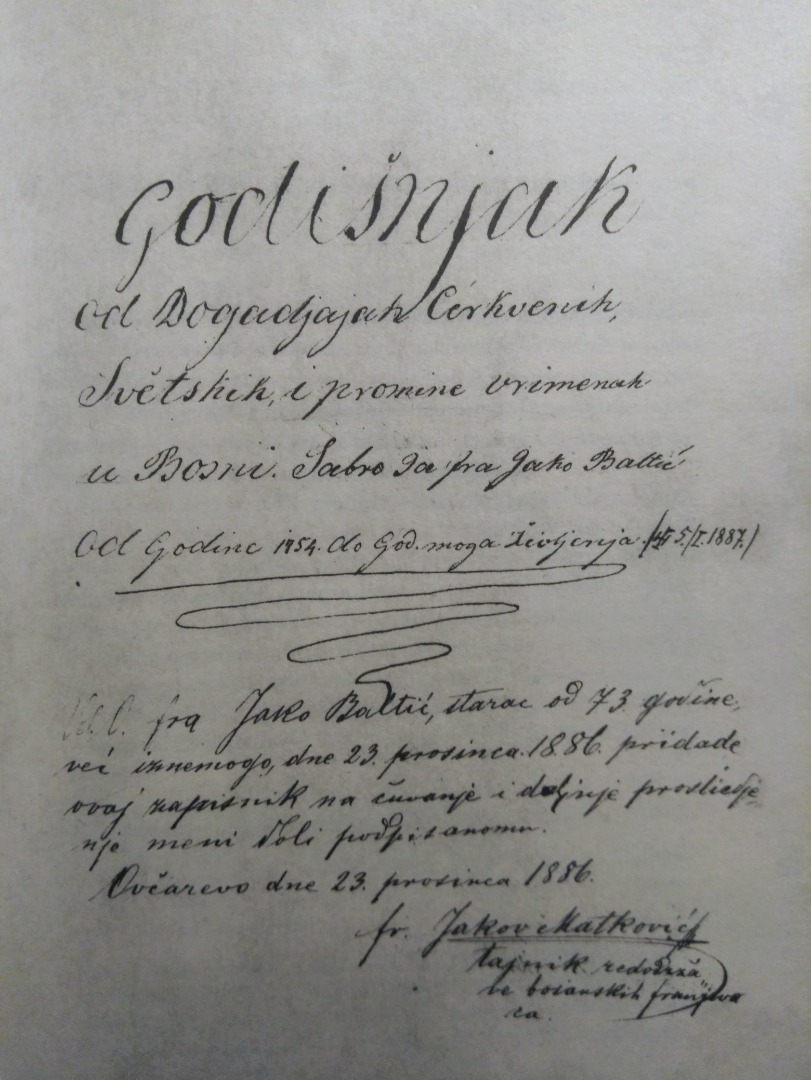 Godišnjak
od Dogadjajah Cérkvenih,
Světskih, i promine vrimenah
u Bosni. Sabro Ja fra Jako Baltić
Od Godine 1754. do God. moga Življenja. 5./I. 1887.)
fra Jako Baltić, starac od 73 godine,
već iznemogo, dne 23. prosinca 1886. pridade
ovaj zapisnik na čuvanje i daljnje prosliedje-
nje meni doli podpisanomu.
Ovčarevo dne 23. prosinca 1886.
fr. Jakov Matković
tajnik redodržā
ve bosanskih franjeva
ca.